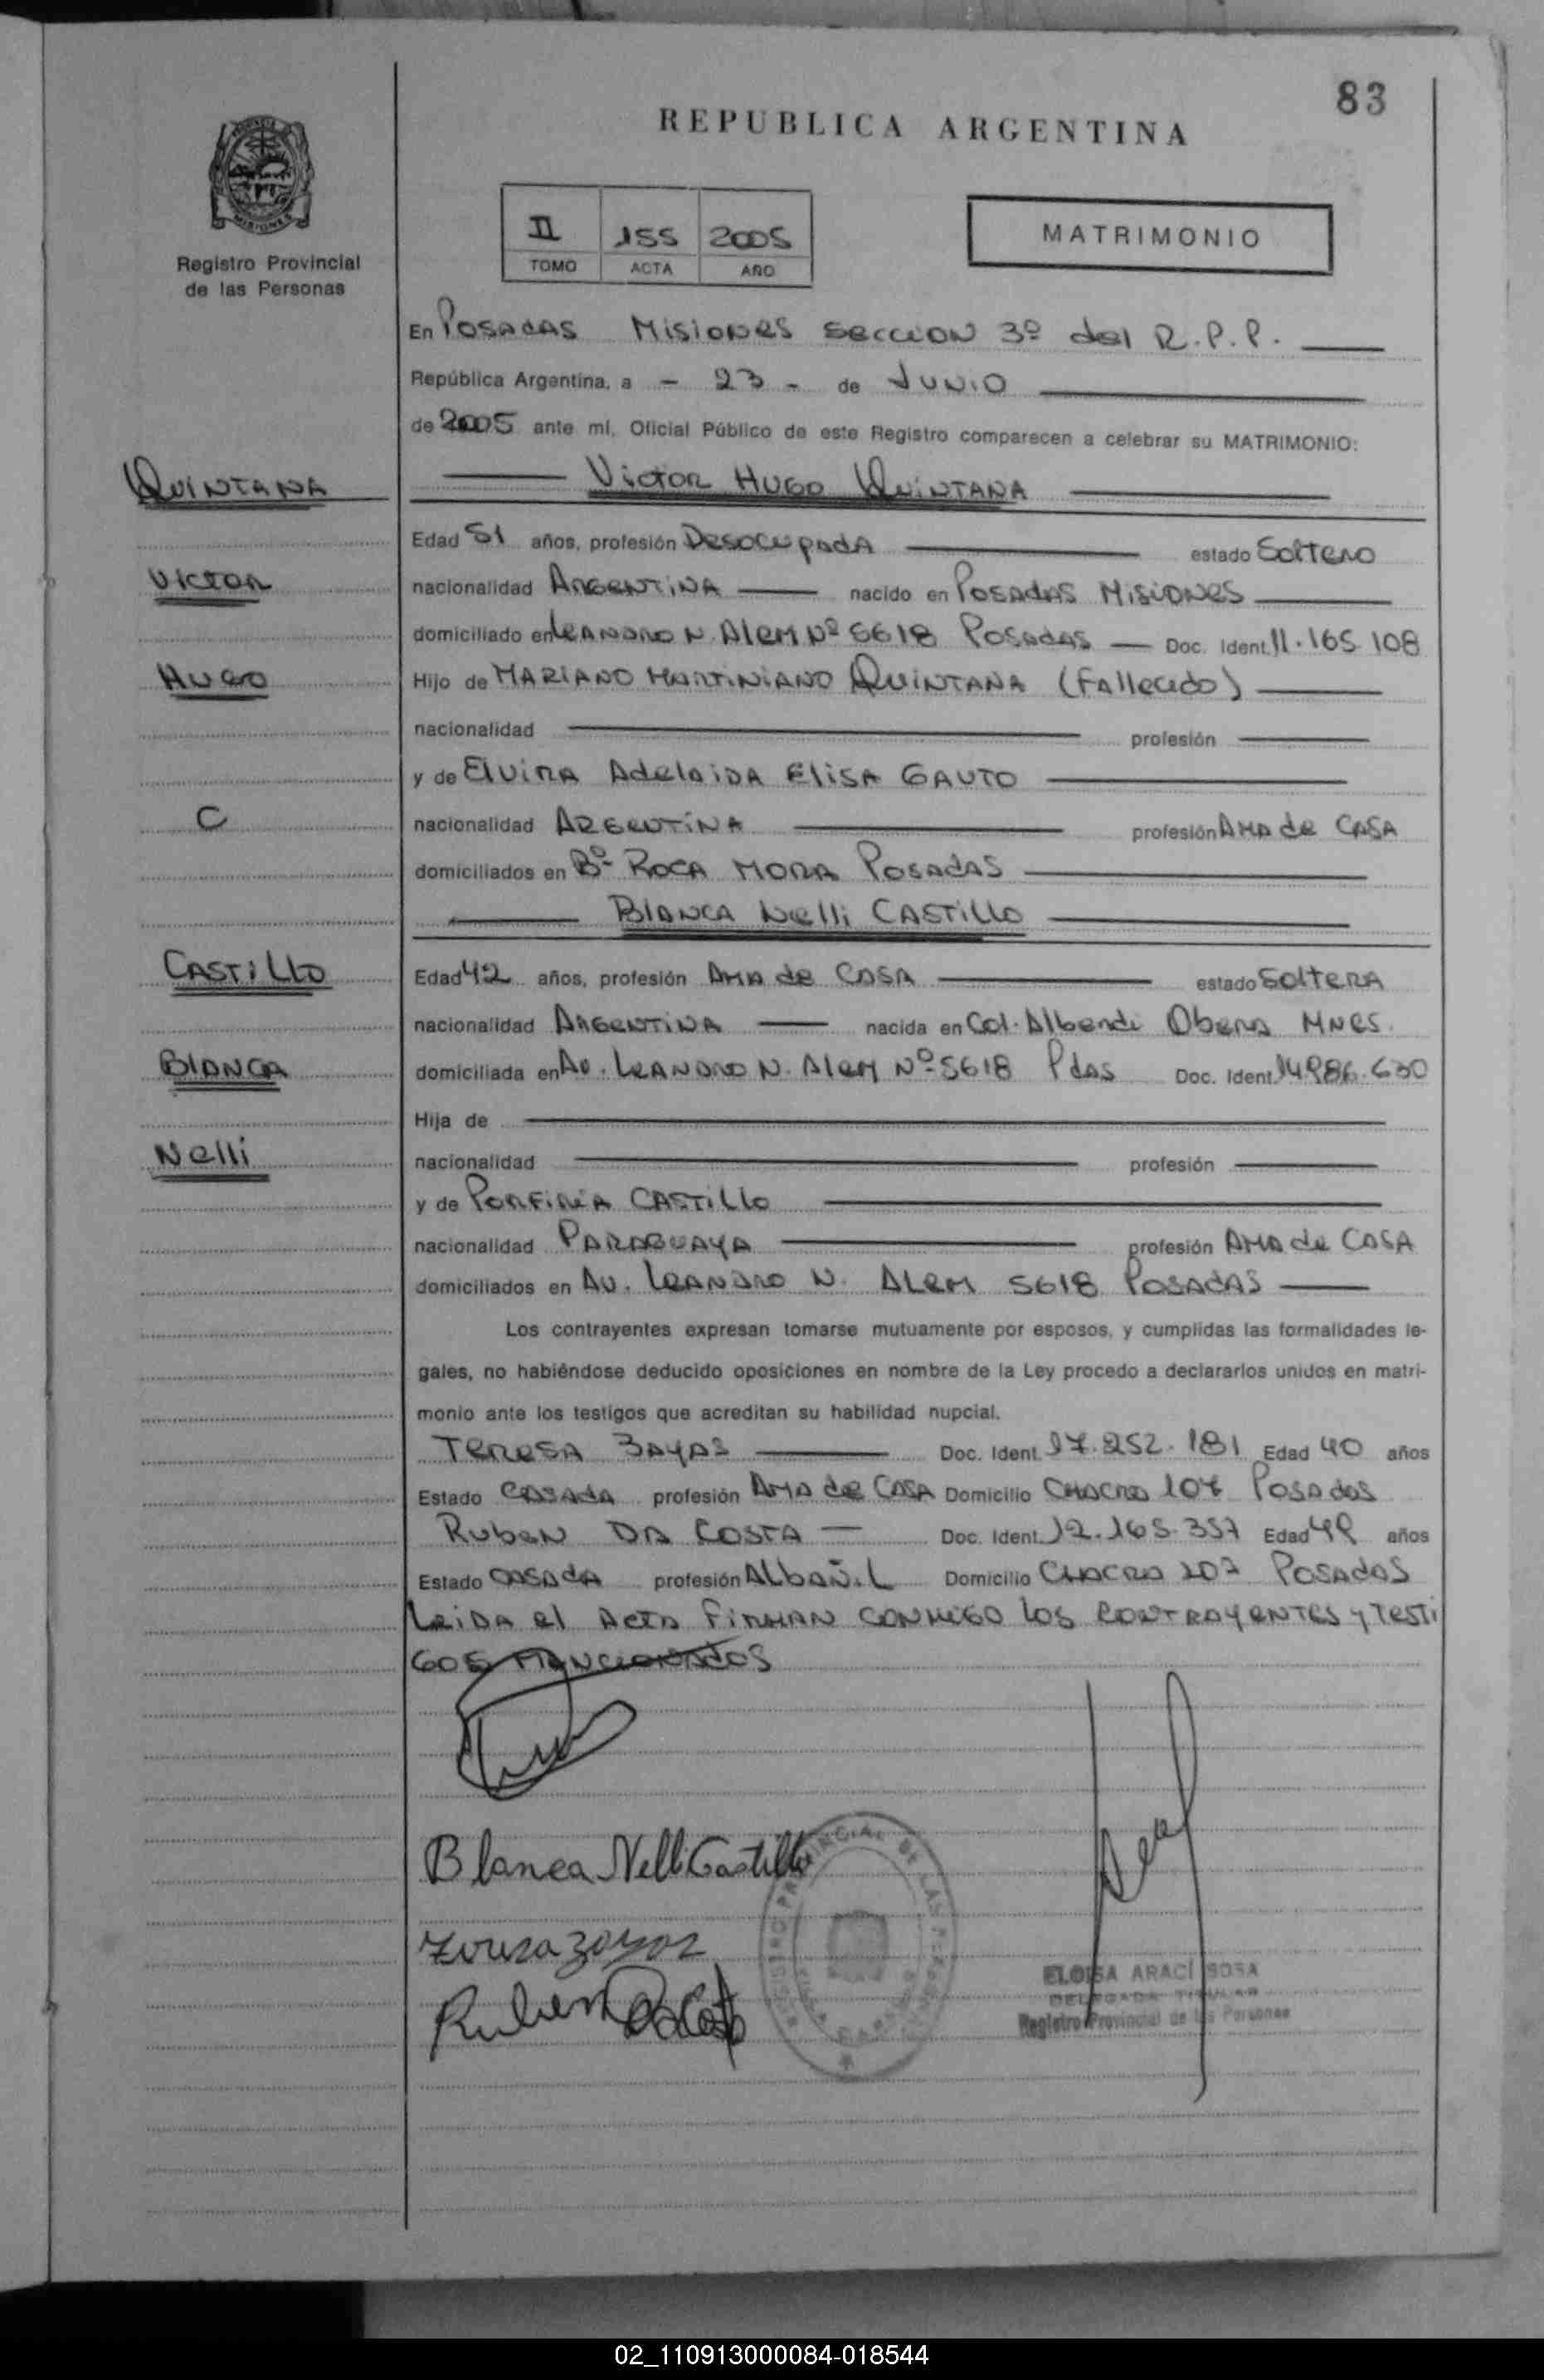 83
REPUBLICA ARGENTINA
PROVINCIA DE
MISIONES
Registro Provincial
de las Personas
II 155 2005
TOMO ACTA AÑO
MATRIMONIO
En Posadas Misiones seccion 3º del R.P.P.
República Argentina, a - 23 - de Junio
de 2005 ante mí, Oficial Público de este Registro comparecen a celebrar su MATRIMONIO:
Quintana
Victor Hugo Quintana
Edad 51 años, profesión Desocupada estado Soltero
Victor
nacionalidad Argentina nacido en Posadas Misiones
domiciliado en Leandro N. Alem Nº 5618 Posadas Doc. Ident. 11.165.108
Hugo
Hijo de Mariano Martiniano Quintana (Fallecido)
nacionalidad profesión
y de Elvira Adelaida Elisa Gauto
C
nacionalidad Argentina profesión Ama de Casa
domiciliados en Bº Roca Mora Posadas
Blanca Nelli Castillo
Castillo
Edad 42 años, profesión Ama de Casa estado Soltera
nacionalidad Argentina nacida en Col. Alberdi Obera Mnes.
Blanca
domiciliada en Av. Leandro N. Alem Nº 5618 Pdas Doc. Ident. 14.986.630
Hija de
Nelli
nacionalidad profesión
y de Porfiria Castillo
nacionalidad Paraguaya profesión Ama de Casa
domiciliados en Av. Leandro N. Alem 5618 Posadas
Los contrayentes expresan tomarse mutuamente por esposos, y cumplidas las formalidades le-
gales, no habiéndose deducido oposiciones en nombre de la Ley procedo a declararlos unidos en matri-
monio ante los testigos que acreditan su habilidad nupcial.
Teresa Zayas Doc. Ident. 17.252.181 Edad 40 años
Estado Casada profesión Ama de Casa Domicilio Chacra 107 Posadas
Ruben Da Costa Doc. Ident. 12.165.357 Edad 49 años
Estado Casada profesión Albañil Domicilio Chacra 107 Posadas
Leida el Acta firman conmigo los contrayentes y testi
gos mencionados
Blanca Nelli Castillo
Teresa Zayas
Ruben Da Costa
REGISTRO PROVINCIAL DE LAS PERSONAS
ELOISA ARACI SOSA
DELEGADA TITULAR
Registro Provincial de las Personas
02_110913000084-018544